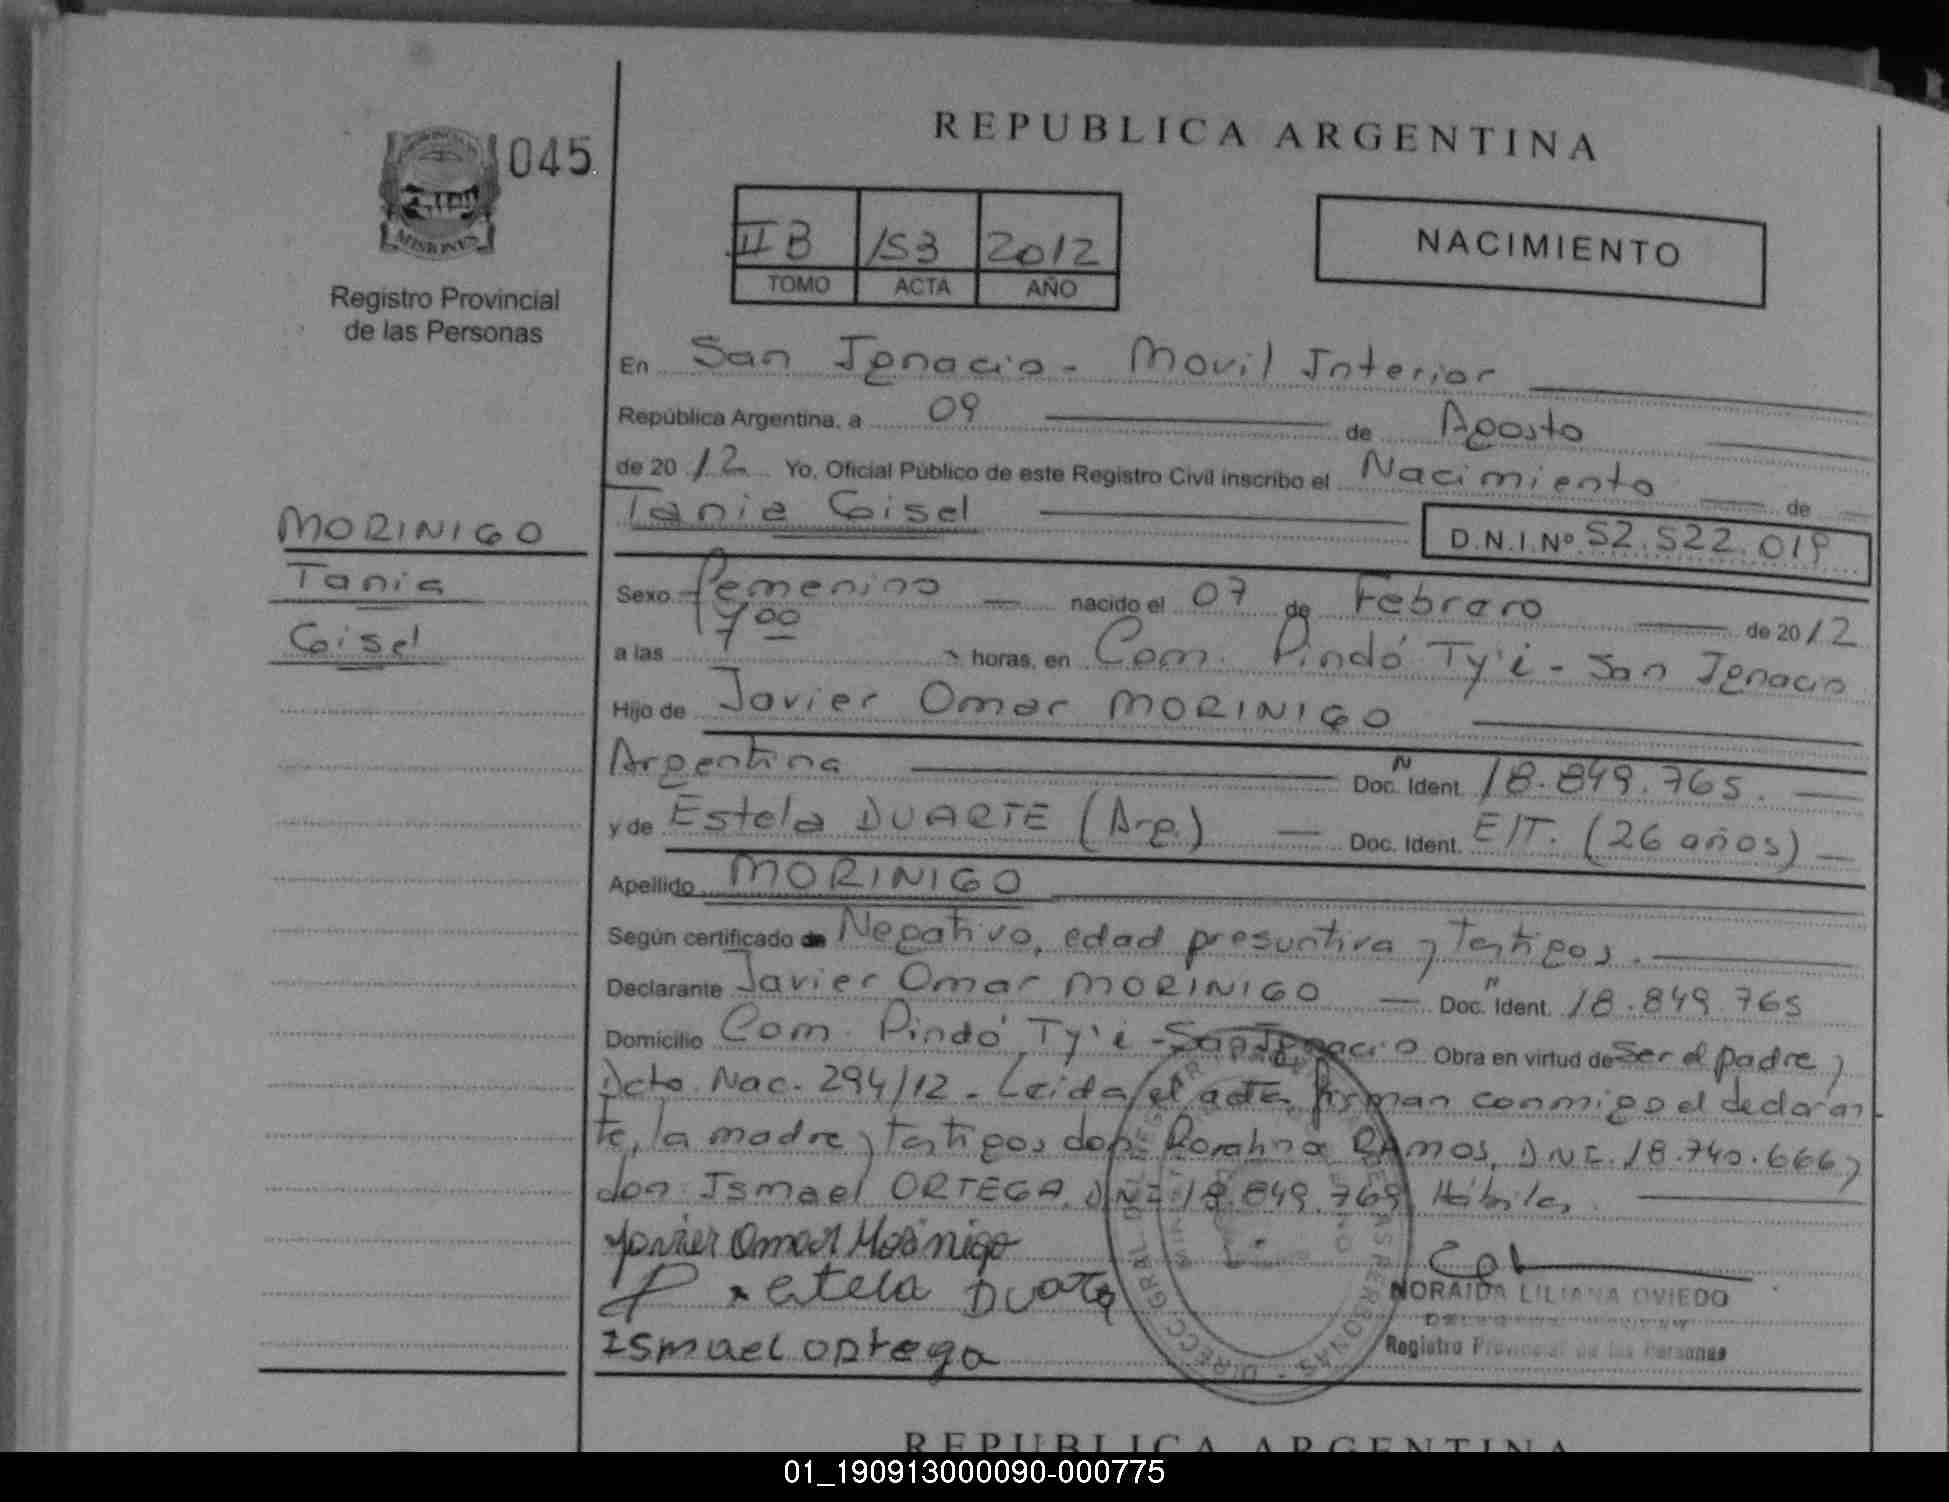 REPUBLICA ARGENTINA
045
MISIONES
Registro Provincial
de las Personas
II B 153 2012
TOMO ACTA AÑO
NACIMIENTO
En San Ignacio - Movil Interior
República Argentina, a 09 de Agosto
de 2012 Yo, Oficial Público de este Registro Civil inscribo el Nacimiento de
Tania Gisel D.N.I.Nº 52.522.019
MORINIGO
Tania
Gisel
Sexo femenino nacido el 07 de Febrero de 2012
a las 7 00 horas, en Com. Pindó Ty'i - San Ignacio
Hijo de Javier Omar MORINIGO
Argentina Doc. N Ident. 18.849.765.
y de Estela DUARTE (Arg.) Doc. Ident. E/T. (26 años)
Apellido MORINIGO
Según certificado de Negativo, edad presuntiva y testigos.
Declarante Javier Omar MORINIGO Doc. N Ident. 18.849.765
Domicilio Com. Pindó Ty'i - San Ignacio Obra en virtud de ser el padre y
Dcto. Nac. 294/12. Leida el acta, firman conmigo el declaran-
te, la madre y testigos don RAMOS, DNI. 18.740.666 y
don Ismael ORTEGA, DNI 18.849.769 Hábiles.
Javier Omar Morinigo
estela Duate
Ismael ortega
NORAIDA LILIANA OVIEDO
Registro Provincial de las Personas
REPUBLICA ARGENTINA
01_190913000090-000775